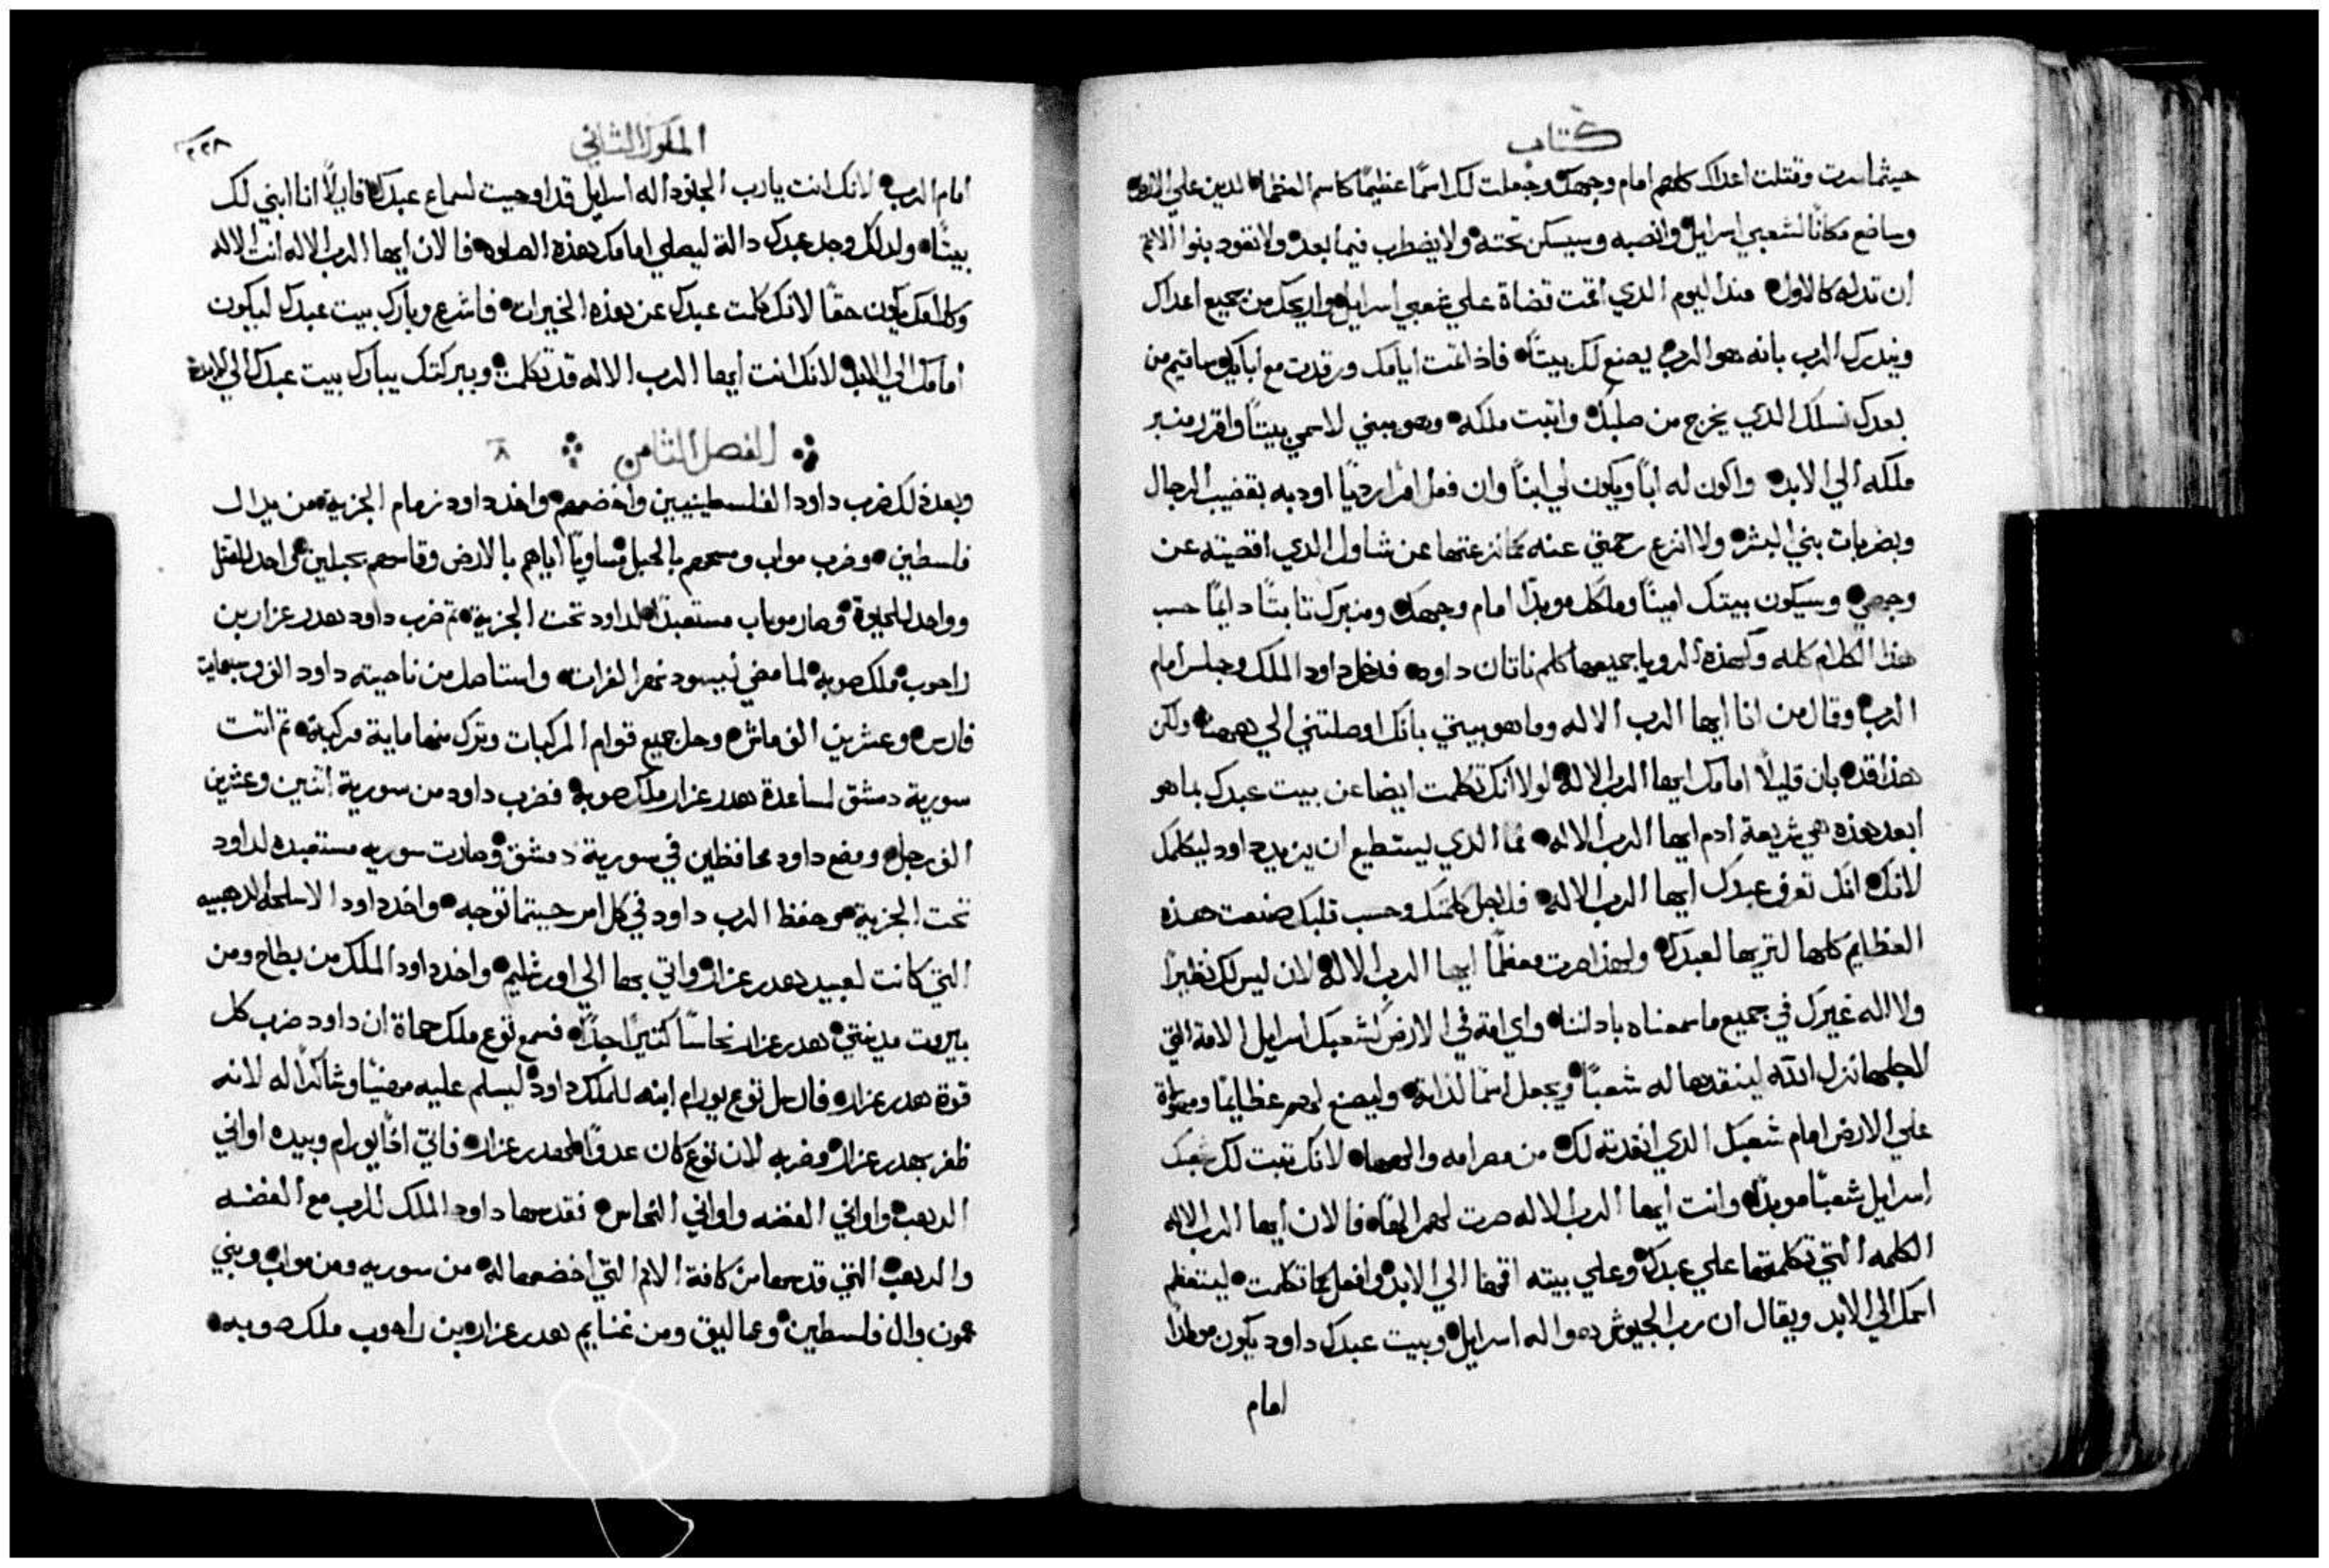 كتاب
حيثما سرت وقتلت اعداك كلهم امام وجهك وجعلت لك اسمًا عظيمًا كاسم العظما الدين علي الارض
وساضع مكانًا لشعبي اسراييل وانصبه وسيسكن تحته ولا يضطرب فيما بعد ولا تعود بنوا الاثم
ان تدله كالاول مند اليوم الدي اقمت قضاة علي شعبي اسراييل واريحك من جميع اعداك
ويندرك الرب بانه هو الرب يصنع لك بيتًا فاذا تمت ايامك ورقدت مع اباك وساقيم من
بعدك نسلك الدي يخرج من صلبك واتبت ملكه وهو يبني لاسمي بيتًا واقرر منبر
ملكه الي الابد واكون له ابًا ويكون لي ابنًا وان فعل امرًا رديًا اودبه بقضيب الرجال
وبضربات بني البشر ولا انزع رحمتي عنه كما نزعتها عن شاول الدي اقصيته عن
وجهي وسيكون بيتك امينًا وملكك موبدًا امام وجهك ومنبرك تابتًا دايمًا حسب
هذا الكلام كله وكهذه الرويا جميعها كلم ناتان داود فدخل داود الملك وجلس امام
الرب وقال من انا ايها الرب الاله وما هو بيتي بانك اوصلتني الي ههنا ولكن
هذا قد بان قليلًا امامك ايها الرب الاله لولا انك تكلمت ايضا عن بيت عبدك بما هو
ابعد هذه هي شريعة ادم ايها الرب الاله فما الدي يستطيع ان يزيد داود ليكلمك
لانك انت تعرف عبدك ايها الرب الاله فلاجل كلمتك وحسب قلبك صنعت هذه
العظايم كلها لتريها لعبدك ولهذا صرت معظمًا ايها الرب الاله لان ليس لك نظيرًا
ولا اله غيرك في جميع ما سمعناه باداننا واي امة في الارض كشعبك اسراييل الامة التي
لاجلها نزل الله لينقدها له شعبًا ويجعل اسمًا لذاته وليصنع لهم عظايمًا
علي الارض امام شعبك الدي انقدته لك من مصر امه والهها لانك تبت لك شعبك
اسراييل شعبًا موبدًا وانت ايها الرب الاله صرت لهم الهًا فالان ايها الرب الاله
الكلمه التي تكلمتها علي عبدك وعلي بيته اقمها الي الابد وافعل كما تكلمت ليتعظم
اسمك الي الابد ويقال ان رب الجيوش هو اله اسراييل وبيت عبدك داود يكون موطدًا
امام
الملوك الثاني
٢٢٨
امام الرب لانك انت يارب الجنود اله اسراييل قد اوحيت لسماع عبدك قايلًا انا ابني لك
بيتًا ولدلك وجد عبدك دالة ليصلي امامك بهذه الصلوه فالان ايها الرب الاله انت الاله
وكلامك يكون حقًا لانك كلمت عبدك عن هذه الخيرات فاشرع وبارك بيت عبدك ليكون
امامك الي الابد لانك انت ايها الرب الاله قد تكلمت وببركتك يبارك بيت عبدك الي الابد
الفصل الثامن ٨
وبعد ذلك ضرب داود الفلسطينيين واخضعهم واخذ داود زمام الجزية من يد ال
فلسطين وضرب مواب ومسحهم بالحبل مساويًا اياهم بالارض وقاسهم بحبلين واحد للقتل
وواحد للحيوة وصار مواب مستعبدًا لداود تحت الجزية تم ضرب داود هدرعزار بن
راحوب ملك صوبه لما مضي ليسود نهر الفرات واستاصل من ناحيته داود الف وسبعماية
فارس وعشرين الف ماش وحل جميع قوايم المركبات وترك منها ماية مركبة تم اتت
سورية دمشق لمساعدة هدرعزار ملك صوبه فضرب داود من سورية اثنين وعشرين
الف رجل ووضع داود محافظين في سورية دمشق وصارت سوريه مستعبده لداود
تحت الجزية وحفظ الرب داود في كل امر حيتما توجه واخذ داود الاسلحة الدهبيه
التي كانت لعبيد هدرعزار واتي بها الي اورشليم واخد داود الملك من بطاح ومن
بيروت مدينتي هدرعزار نحاسًا كتيرًا جدًا فسمع توع ملك حماة ان داود ضرب كل
قوة هدرعزار فارسل توع يورام ابنه للملك داود ليسلم عليه مهنيًا وشاكرًا له لانه
ظفر بهدرعزار وضربه لان توع كان عدوًا لهدرعزار فاتي يورام وبيده اواني
الدهب واواني الفضه واواني النحاس فقدسها داود الملك للرب مع الفضه
والدهب التي قدسها من كافة الامم التي اخضعها له من سوريه ومن مواب وبني
عمون وال فلسطين وعماليق ومن غنايم هدرعزار بن راحوب ملك صوبه